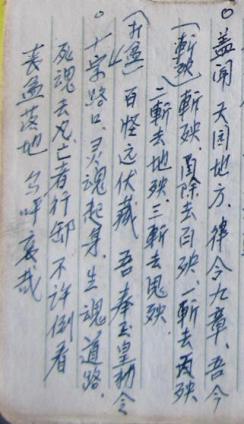 。盖闻天园地方、律令九章、吾今
(斩殃) 斩殃、国除去百殃、一斩去天殃
二斩去地殃、三斩去鬼殃
(打盆) 百怪远伏藏 吾奉玉皇勅令
。十字路口、灵魂起身、生魂道路、
死魂去见、亡者行 不许倒看
丧盆落地 乌呼哀哉